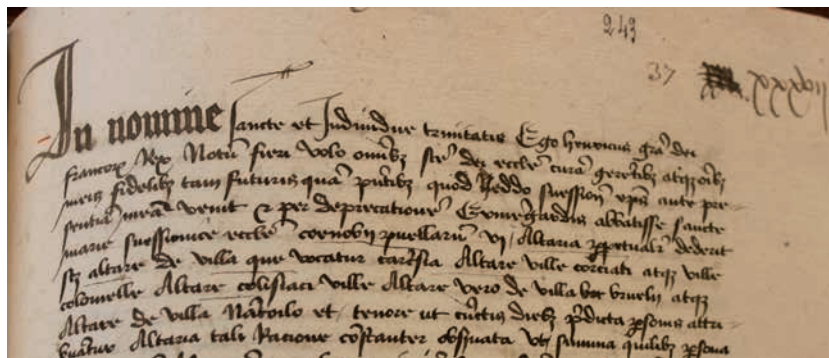 243
37 xxxvii
In nomine sancte et Individue trinitatis Ego henricus gra dei
francorz Rex Notu fieri volo omibz ste dei ecclie cura geretibz atqz oibz
meis fidelibz tam futuris qua pntibz quod heddo suession eps ante pre-
sentia mea venit & per deprecatione Emegardis abbatisse sancte
marie suessionice ecclie cenobii puellaru vi Altaria ppetualr dederit
sz altare de villa que vocatur Altare ville corciati atqz ville
colomelle Altare colisiaci ville Altare vero de villa atqz
Altare de villa Natoilo et tenore ut cuctis diebz pdicta psonis attri-
buatur Altaria tali Racione costanter obsuata ut suma quilibz psona